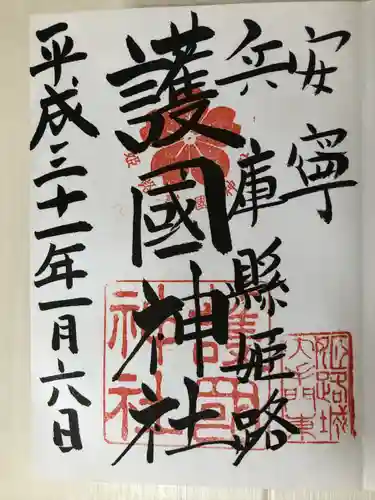 安寧
兵庫縣姫路
護國神社
平成三十一年一月六日
護國神社
姫路城大手門東